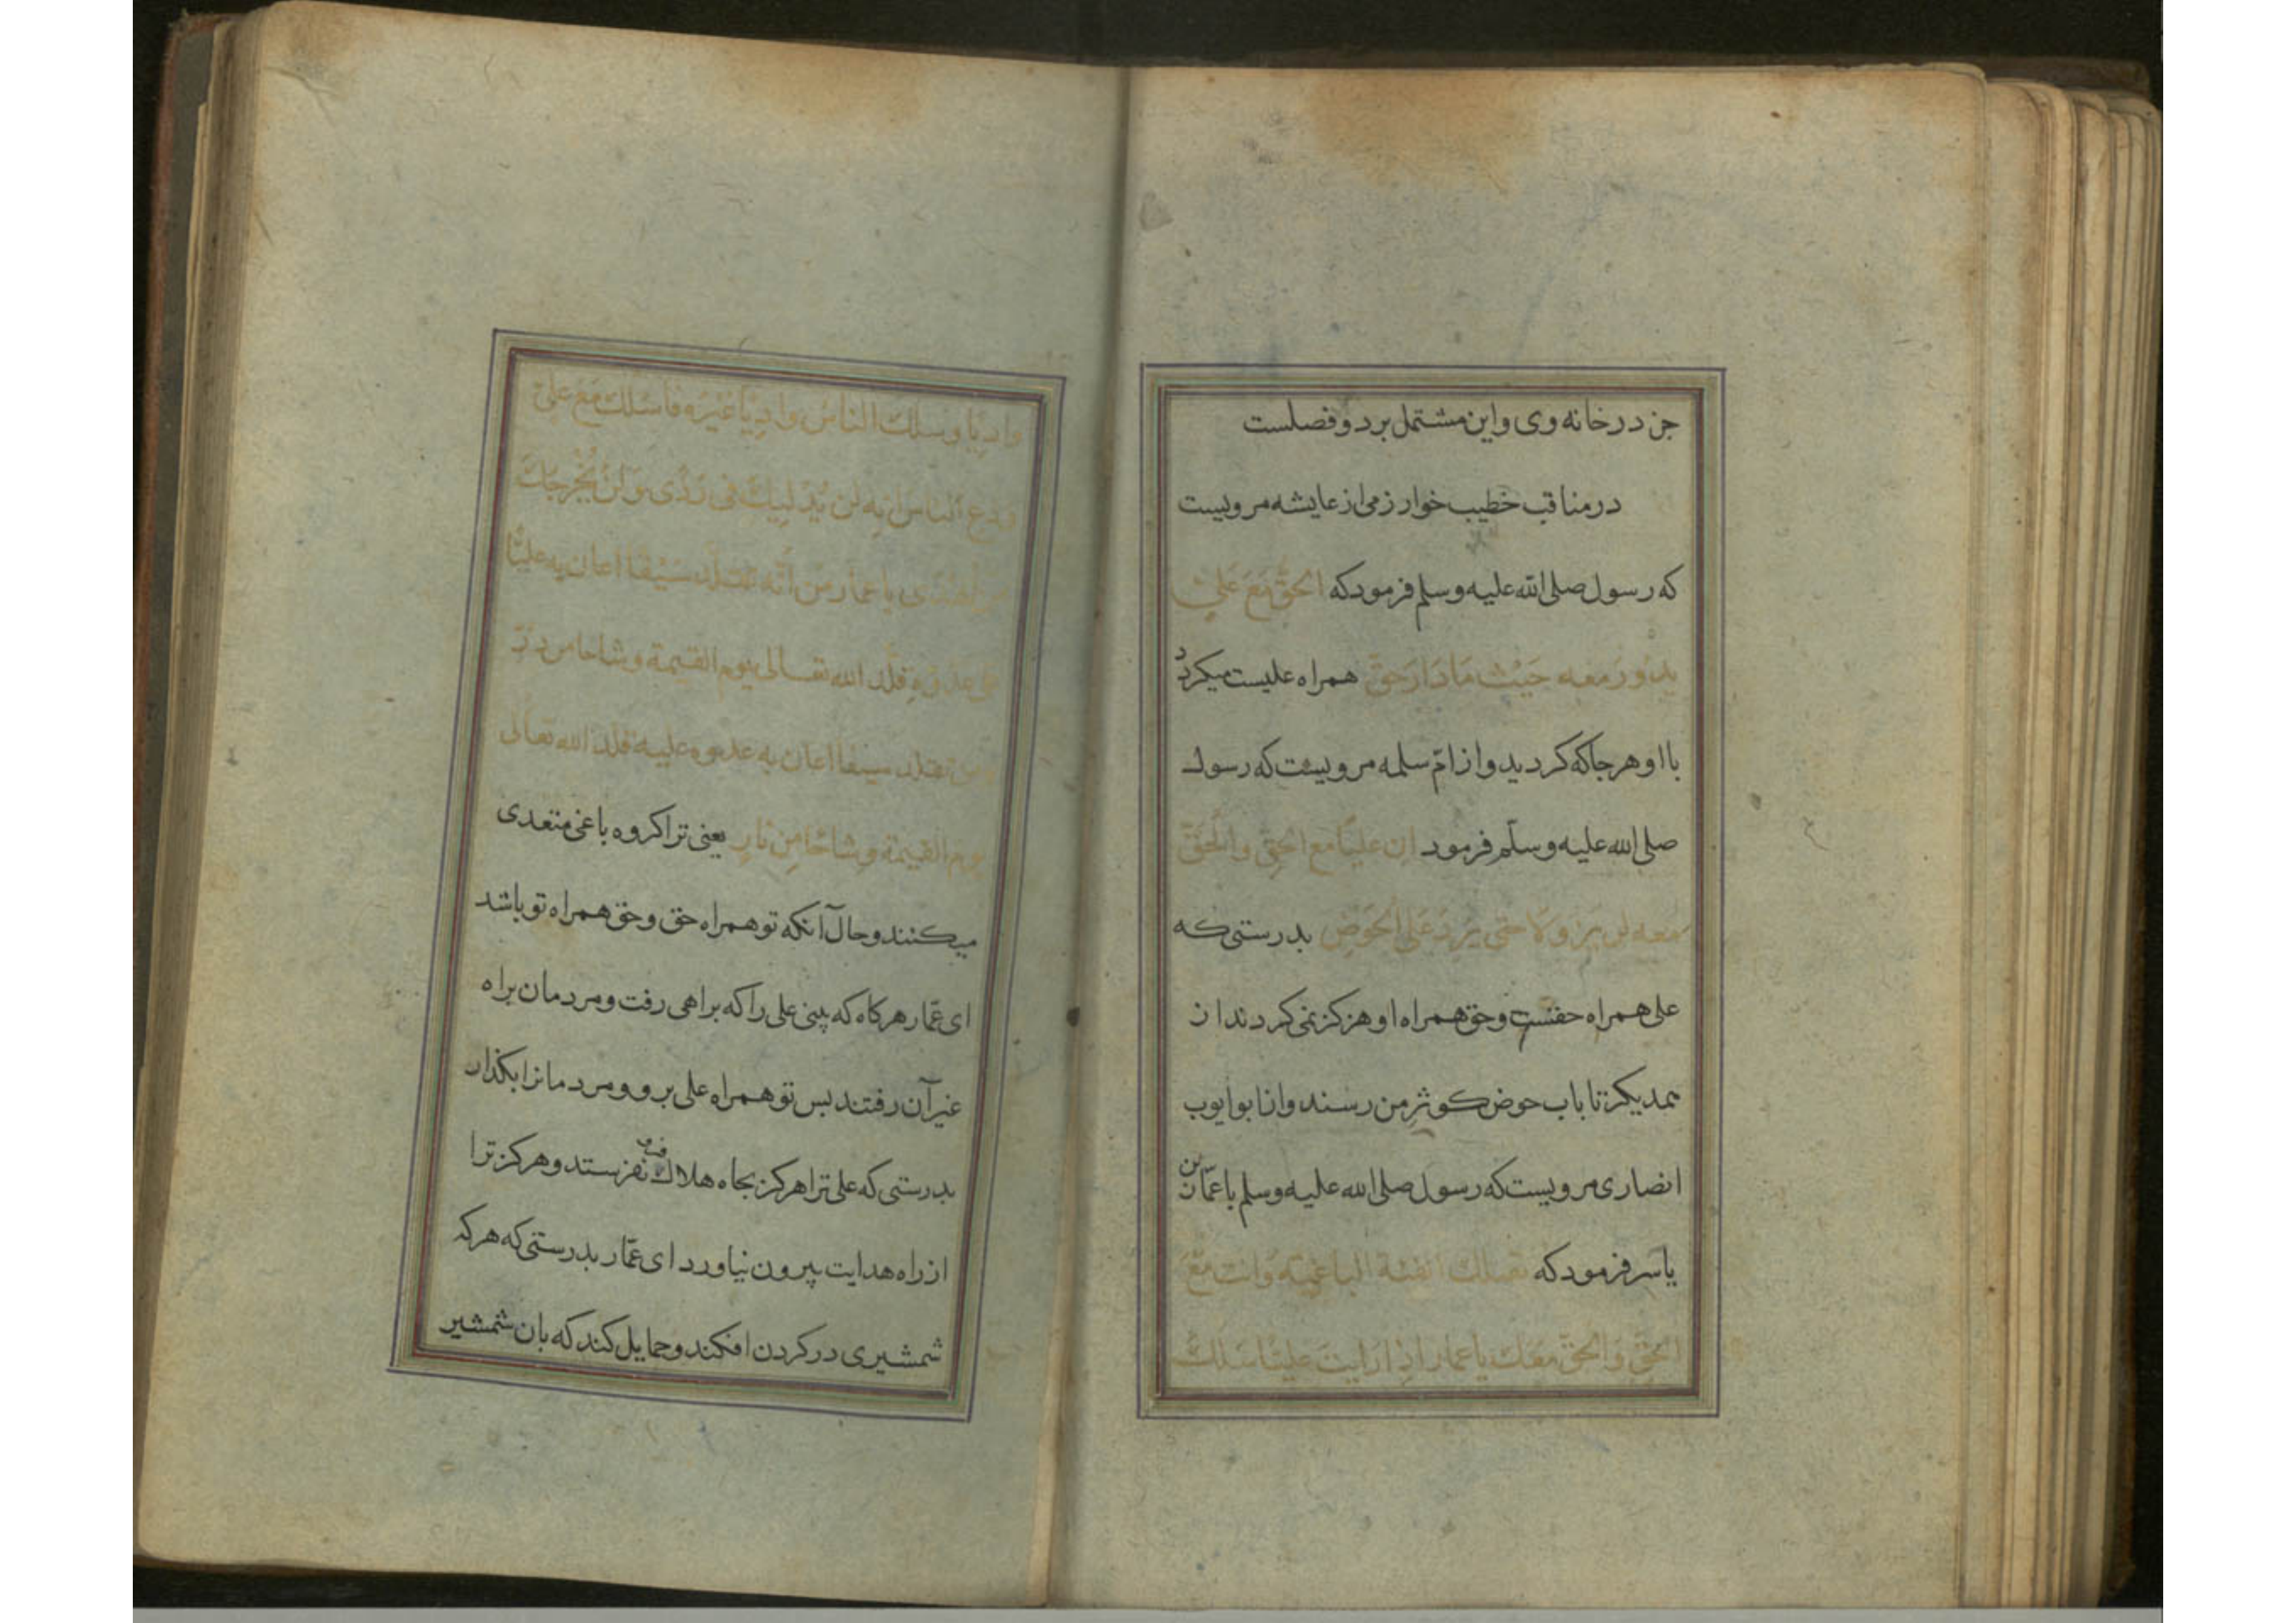 جز در خانه وی و این مشتمل بر دو فصلست
در مناقب خطیب خوارزمی از عایشه مرویست
که رسول صلی الله علیه وسلم فرمود که الحَقُّ مَعَ عَلیٍ
یدُور معه حَیْثُ مَا دَارَ حق همراه علیست میکردد
با او هر جا که کردید و از امّ سلمه مرویست که رسول
صلی الله علیه وسلّم فرمود ان علیًا مع الحقِ والحَقَّ
معه لن یزولا حتی یرِدَ عَلَی الحَوضِ بدرستی که
علی همراه حقست و حق همراه او هرکز نمی کردند از
همدیکر تا باب حوض کوثرِ من رسند و از ابو ایوب
انصاری مرویست که رسول صلی الله علیه وسلم با عمّار بن
یاسر فرمود که تقتلك الفئة الباغیة وانت مَعَ
الحَقِّ وَالحقّ معَك یا عمار اِذا رایتَ علیًا سَلكَ
وادِیًا وسلكَ الناسُ وادِیًا غیْرَه فاسلك مَعَ علیٍ
ودع الناسَ اِنه لن یُدْلِیكَ فی رَدًی ولن یُخرجَك
من هُدًی یا عمار من انّه تقلّد سَیْفًا اعان به علیًّا
علی عدوّه قلّد الله تعالی یوم القیمة وشاحا من دُرّ
ومن تقلد سیفا اعان به عدوه علیه قلد الله تعالی
یوم القیمة وشاحًا مِن نارٍ یعنی ترا کروه باغی متعدی
میکشند و حال آنکه تو همراه حق و حق همراه تو باشد
ای عمّار هر کاه که بینی علی را که براهی رفت و مردمان براه
غیر آن رفتند بس تو همراه علی برو و مردمانرا بکذار
بدرستی که علی ترا هرکز بچاه هلاك نفرستد و هرکز ترا
از راه هدایت بیرون نیاورد ای عمّار بدرستی که هر که
شمشیری در کردن افکند و حمایل کند که بان شمشیر